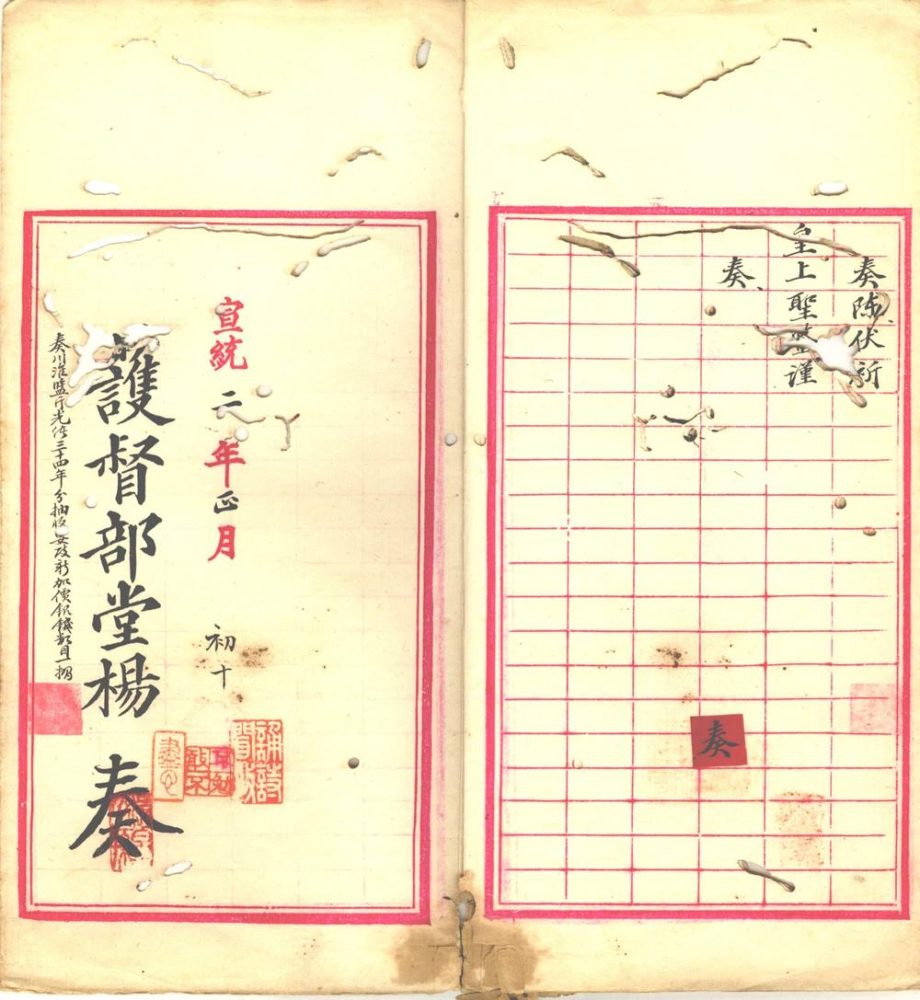 奏陳伏祈
皇上聖鑒謹
奏
奏
宣統二年正月初十
護督部堂楊 奏
奏川淮鹽斤光緒三十四年分抽收每改新加價銀錢數目一摺